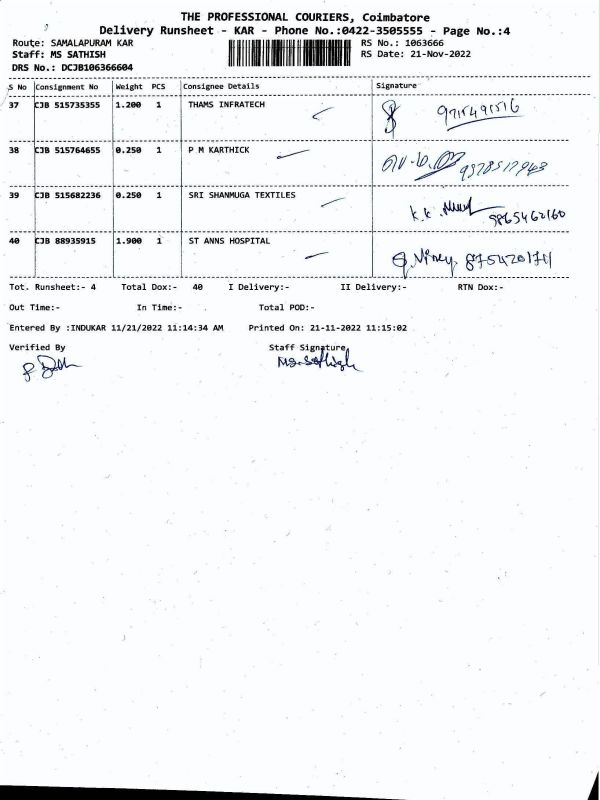 THE PROFESSIONAL COURIERS, Coimbatore
Delivery Runsheet - KAR - Phone No.:0422-3505555 - Page No.:4
Route: SAMALAPURAM KAR RS No.: 1063666
Staff: MS SATHISH RS Date: 21-Nov-2022
DRS No.: DCJB106366604
S No Consignment No Weight PCS Consignee Details Signature
37 CJB 515735355 1.200 1 THAMS INFRATECH 9715491516
38 CJB 515764655 0.250 1 P M KARTHICK
39 CJB 515682236 0.250 1 SRI SHANMUGA TEXTILES K.K. 9865462160
40 CJB 88935915 1.900 1 ST ANNS HOSPITAL
Tot. Runsheet:- 4 Total Dox:- 40 I Delivery:- II Delivery:- RTN Dox:-
Out Time:- In Time:- Total POD:-
Entered By :INDUKAR 11/21/2022 11:14:34 AM Printed On: 21-11-2022 11:15:02
Verified By Staff Signature
MS.Sathish